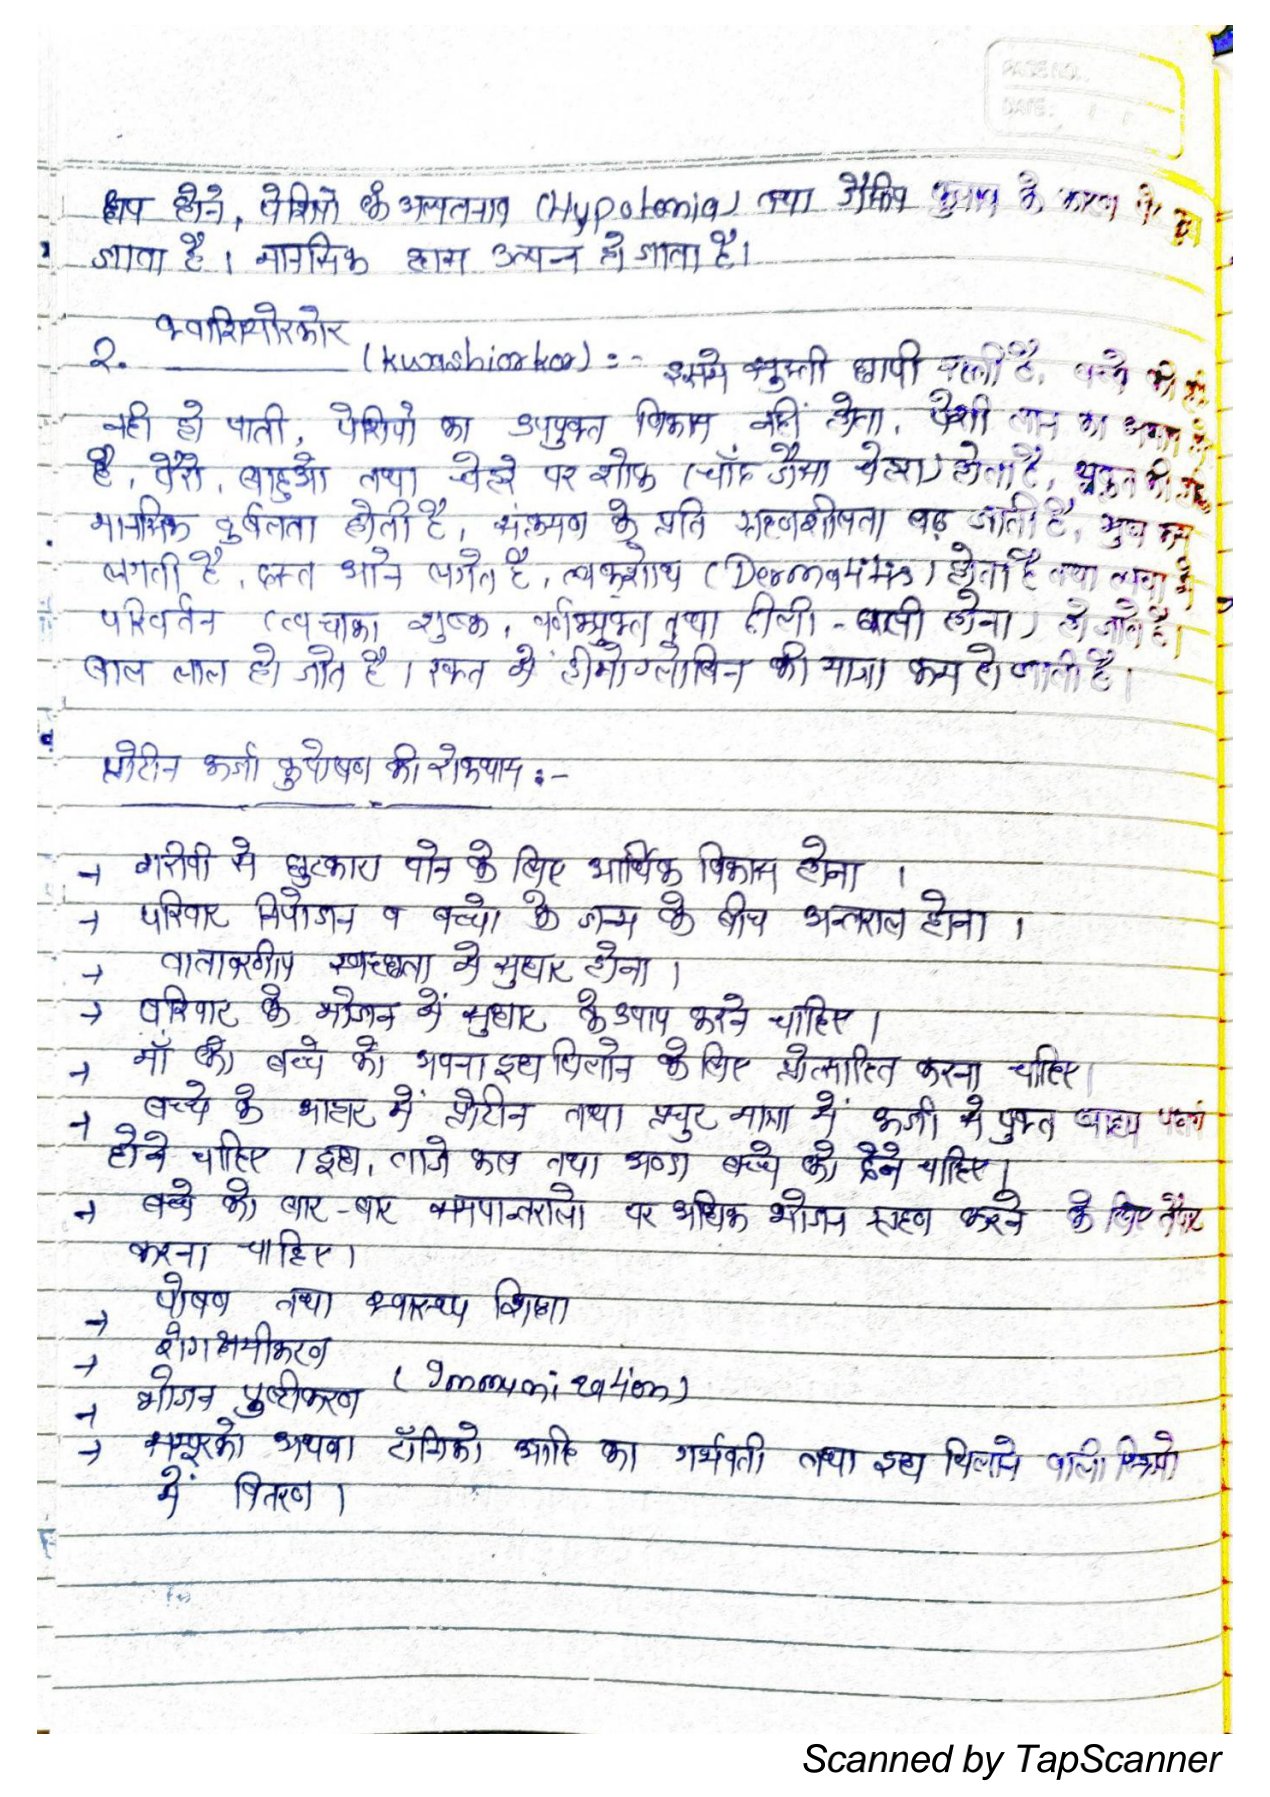 होने, पेशियों के अल्पतनाव (Hypotonia) तथा के कारण
जाता है। मानसिक ह्रास उत्पन्न हो जाता है।
क्वाशियोरकोर
2. (Kwashiorkor) :- इसमें सुस्ती छायी रहती है, बच्चे की
नही हो पाती, पेशियों का उपयुक्त विकास नहीं होता, पेशी का
है, पैरो, बाहुओ तथा चेहरे पर शोफ (चाँद जैसा चेहरा) होता है, यकृत की
मानसिक दुर्बलता होती है, संक्रमण के प्रति ग्रहणशीलता बढ़ जाती है, भुख कम
लगती है, दस्त आने लगते है, त्वकशोथ (Dermatitis) होता है तथा त्वचा में
परिवर्तन (त्वचाका शुष्क, वर्णकयुक्त तथा ढीली - ढाली होना) हो जाते है।
बाल लाल हो जाते है। रक्त में हीमोग्लोबिन की मात्रा कम हो जाती है।
प्रोटीन ऊर्जा कुपोषण की रोकथाम :-
→ गरीबी से छुटकारा पाने के लिए आर्थिक विकास होना ।
→ परिवार नियोजन व बच्चो के जन्म के बीच अन्तराल होना ।
→ वातावरणीय स्वच्छता मे सुधार होना ।
→ परिवार के भोजन में सुधार के उपाय करने चाहिए ।
→ माँ को बच्चे को अपना दूध पिलाने के लिए प्रोत्साहित करना चाहिए।
→ बच्चे के आहार में प्रोटीन तथा प्रचुर मात्रा में ऊर्जा से युक्त खाद्य पदार्थ
होने चाहिए । दूध, ताजे फल तथा अण्डा बच्चे को देने चाहिए।
→ बच्चे को बार-बार समयान्तरालो पर अधिक भोजन ग्रहण करने के लिए तैयार
करना चाहिए।
→ पोषण तथा स्वास्थ्य शिक्षा
→ रोगक्षमीकरण
(Immunization)
→ भोजन पुष्टीकरण
→ सम्पूरको अथवा टॉनिको आदि का गर्भवती तथा दूध पिलाने वाली स्त्रियो
में वितरण ।
Scanned by TapScanner